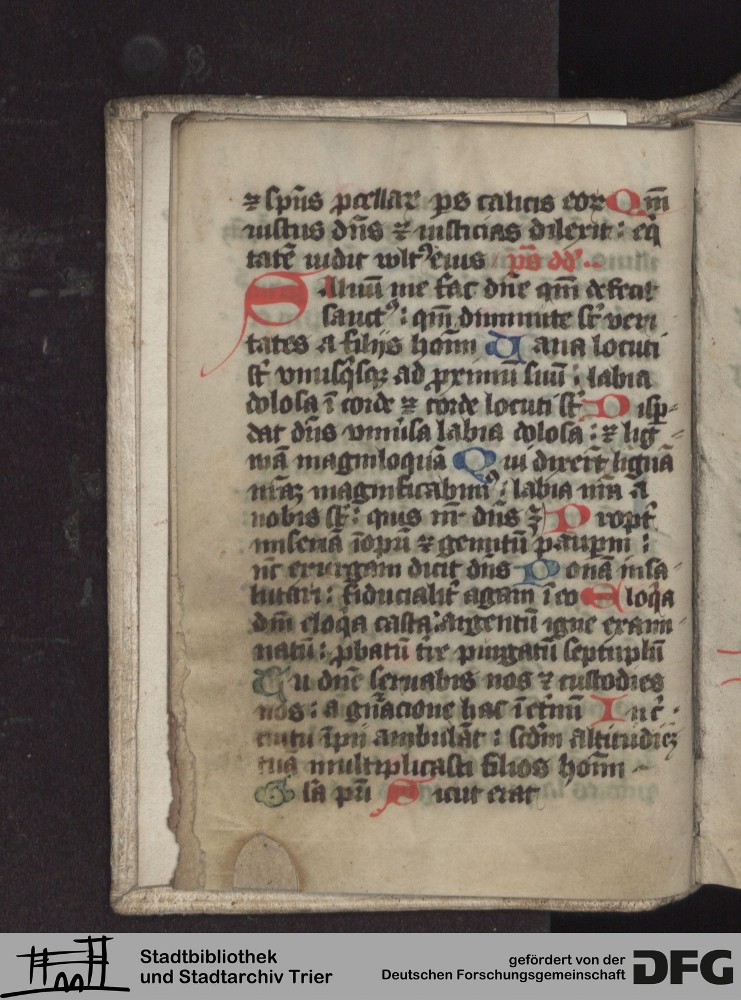 ⁊ spūs ꝓcellaꝝ ps calicis eoꝝ Qm̄
iustus dn̄s ⁊ iusticias dilexit : eq̄
tatē uidit vult⁹ eius ps dd'
Saluū me fac dn̄e qm̄ defecit
sanct⁹ : qm̄ diminute sūt veri
tates a filijs hoīm Uana locuti
sūt vnusq̄sqꝫ ad ꝓximū suū : labia
dolosa ī corde ⁊ corde locuti sūt Disꝑ-
dat dn̄s vniu͛sa labia dolosa : ⁊ lig-
uā magniloquā Qui dixerūt liguā
nr̄aꝫ magnificabim⁹ : labia nr̄a a
nobis sūt : quis nr̄ dn̄s ē Propt͛
miseriā īopū ⁊ gemitū pauꝑum :
nc̄ exurgam dicit dn̄s Ponā in sa-
lutari : fiducialit͛ agam ī eo Eloq̄a
dn̄i eloq̄a casta : argentū igne exami-
natū : ꝓbatū t͛re purgatū septuplū
Tu dn̄e seruabis nos ⁊ custodies
nos : a gn̄acione hac ī et͛nū In c͛-
cuitu īpii ambulāt : scd̄m altitudiēꝫ
tuā multiplicasti filios hoīm
Gl̄a pr̄i Sicut erat
Stadtbibliothek
und Stadtarchiv Trier
gefördert von der
Deutschen Forschungsgemeinschaft
DFG